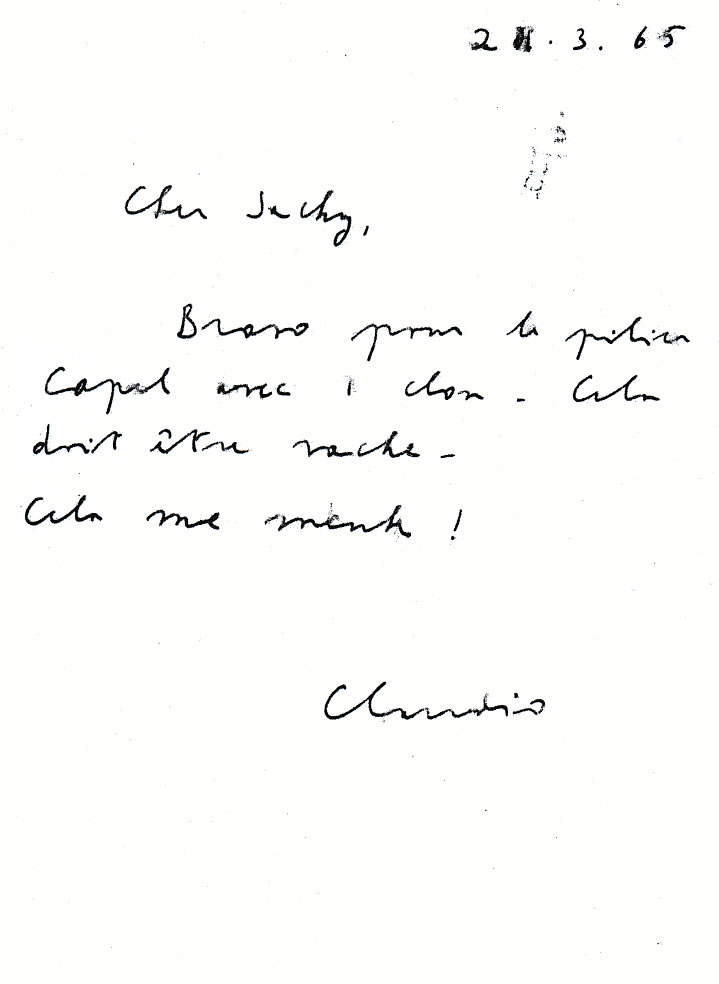 21.3.65
Cher Jacky,
Bravo pour le pilier
Capel avec 1 clou - Cela
doit être vache -
Cela me monte !
Claudio